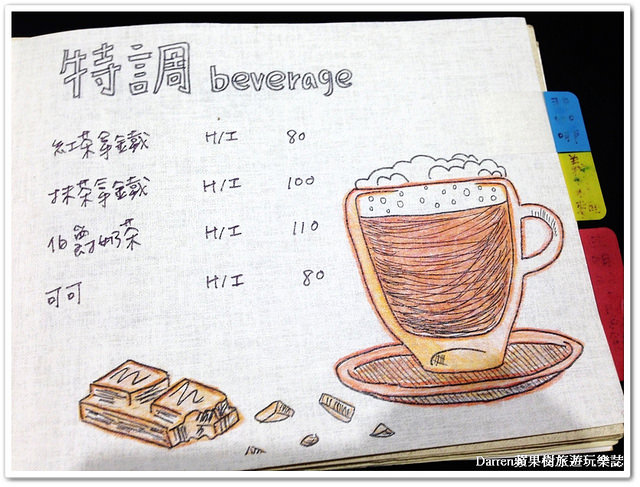 特調 beverage
紅茶拿鐵 H/I 80
抹茶拿鐵 H/I 100
伯爵奶茶 H/I 110
可可 H/I 80
Darren蘋果樹旅遊玩樂誌